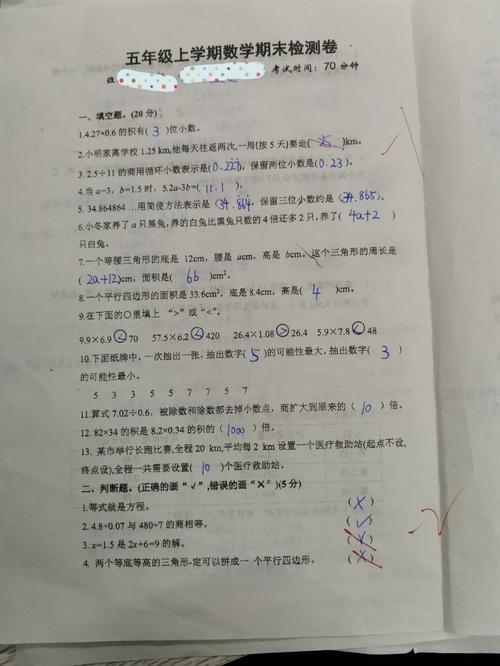 五年级上学期数学期末检测卷
班 考试时间：70分钟
一、填空题。(20分)
1.4.27×0.6的积有( 3 )位小数。
2.小明家离学校1.25 km,他每天往返两次,一周(按5天)要走( 25 )km。
3. 2.5÷11的商用循环小数表示是( ), 保留两位小数是(0.23)。
4.当a=3，b=1.5时，5.2a-3b=( 11.1 )。
5. 34.864864…用简便方法表示是(34.8̇64̇)，保留三位小数约是(34.865)。
6.小冬家养了a只黑兔,养的白兔比黑兔只数的4倍还多2只,养了( 4a+2 )
只白兔。
7.一个等腰三角形的底是12cm，腰是acm，高是bcm。这个三角形的周长是
(2a+12)cm，面积是( 6b )cm²。
8.一个平行四边形的面积是33.6cm²，底是8.4cm，高是( 4 )cm。
9.在下面的○里填上 “>”或“<”。
9.9×6.9 < 70 57.5×6.2 < 420 26.4×1.08 > 26.4 5.9×7.8 < 48
10.下面纸牌中，一次抽出一张，抽出数字( 5 )的可能性最大，抽出数字( 3 )
的可能性最小。
5 3 3 5 5 7 7 5 7
11.算式7.02÷0.6，被除数和除数都去掉小数点，商扩大到原来的( 10 )倍。
12. 82×34的积是8.2×0.34的积的( 1000 )倍。
13. 某市举行长跑比赛,全程20 km,平均每2 km设置一个医疗救助站(起点不设,
终点设),全程一共需要设置( 10 )个医疗救助站。
二、判断题。(正确的画“√”,错误的画“×”)(5分)
1.等式就是方程。 (×)
2. 4.8÷0.07与480÷7的商相等。 (√)
3. x=1.5是2x+6=9的解。
4. 两个等底等高的三角形一定可以拼成一个平行四边形。